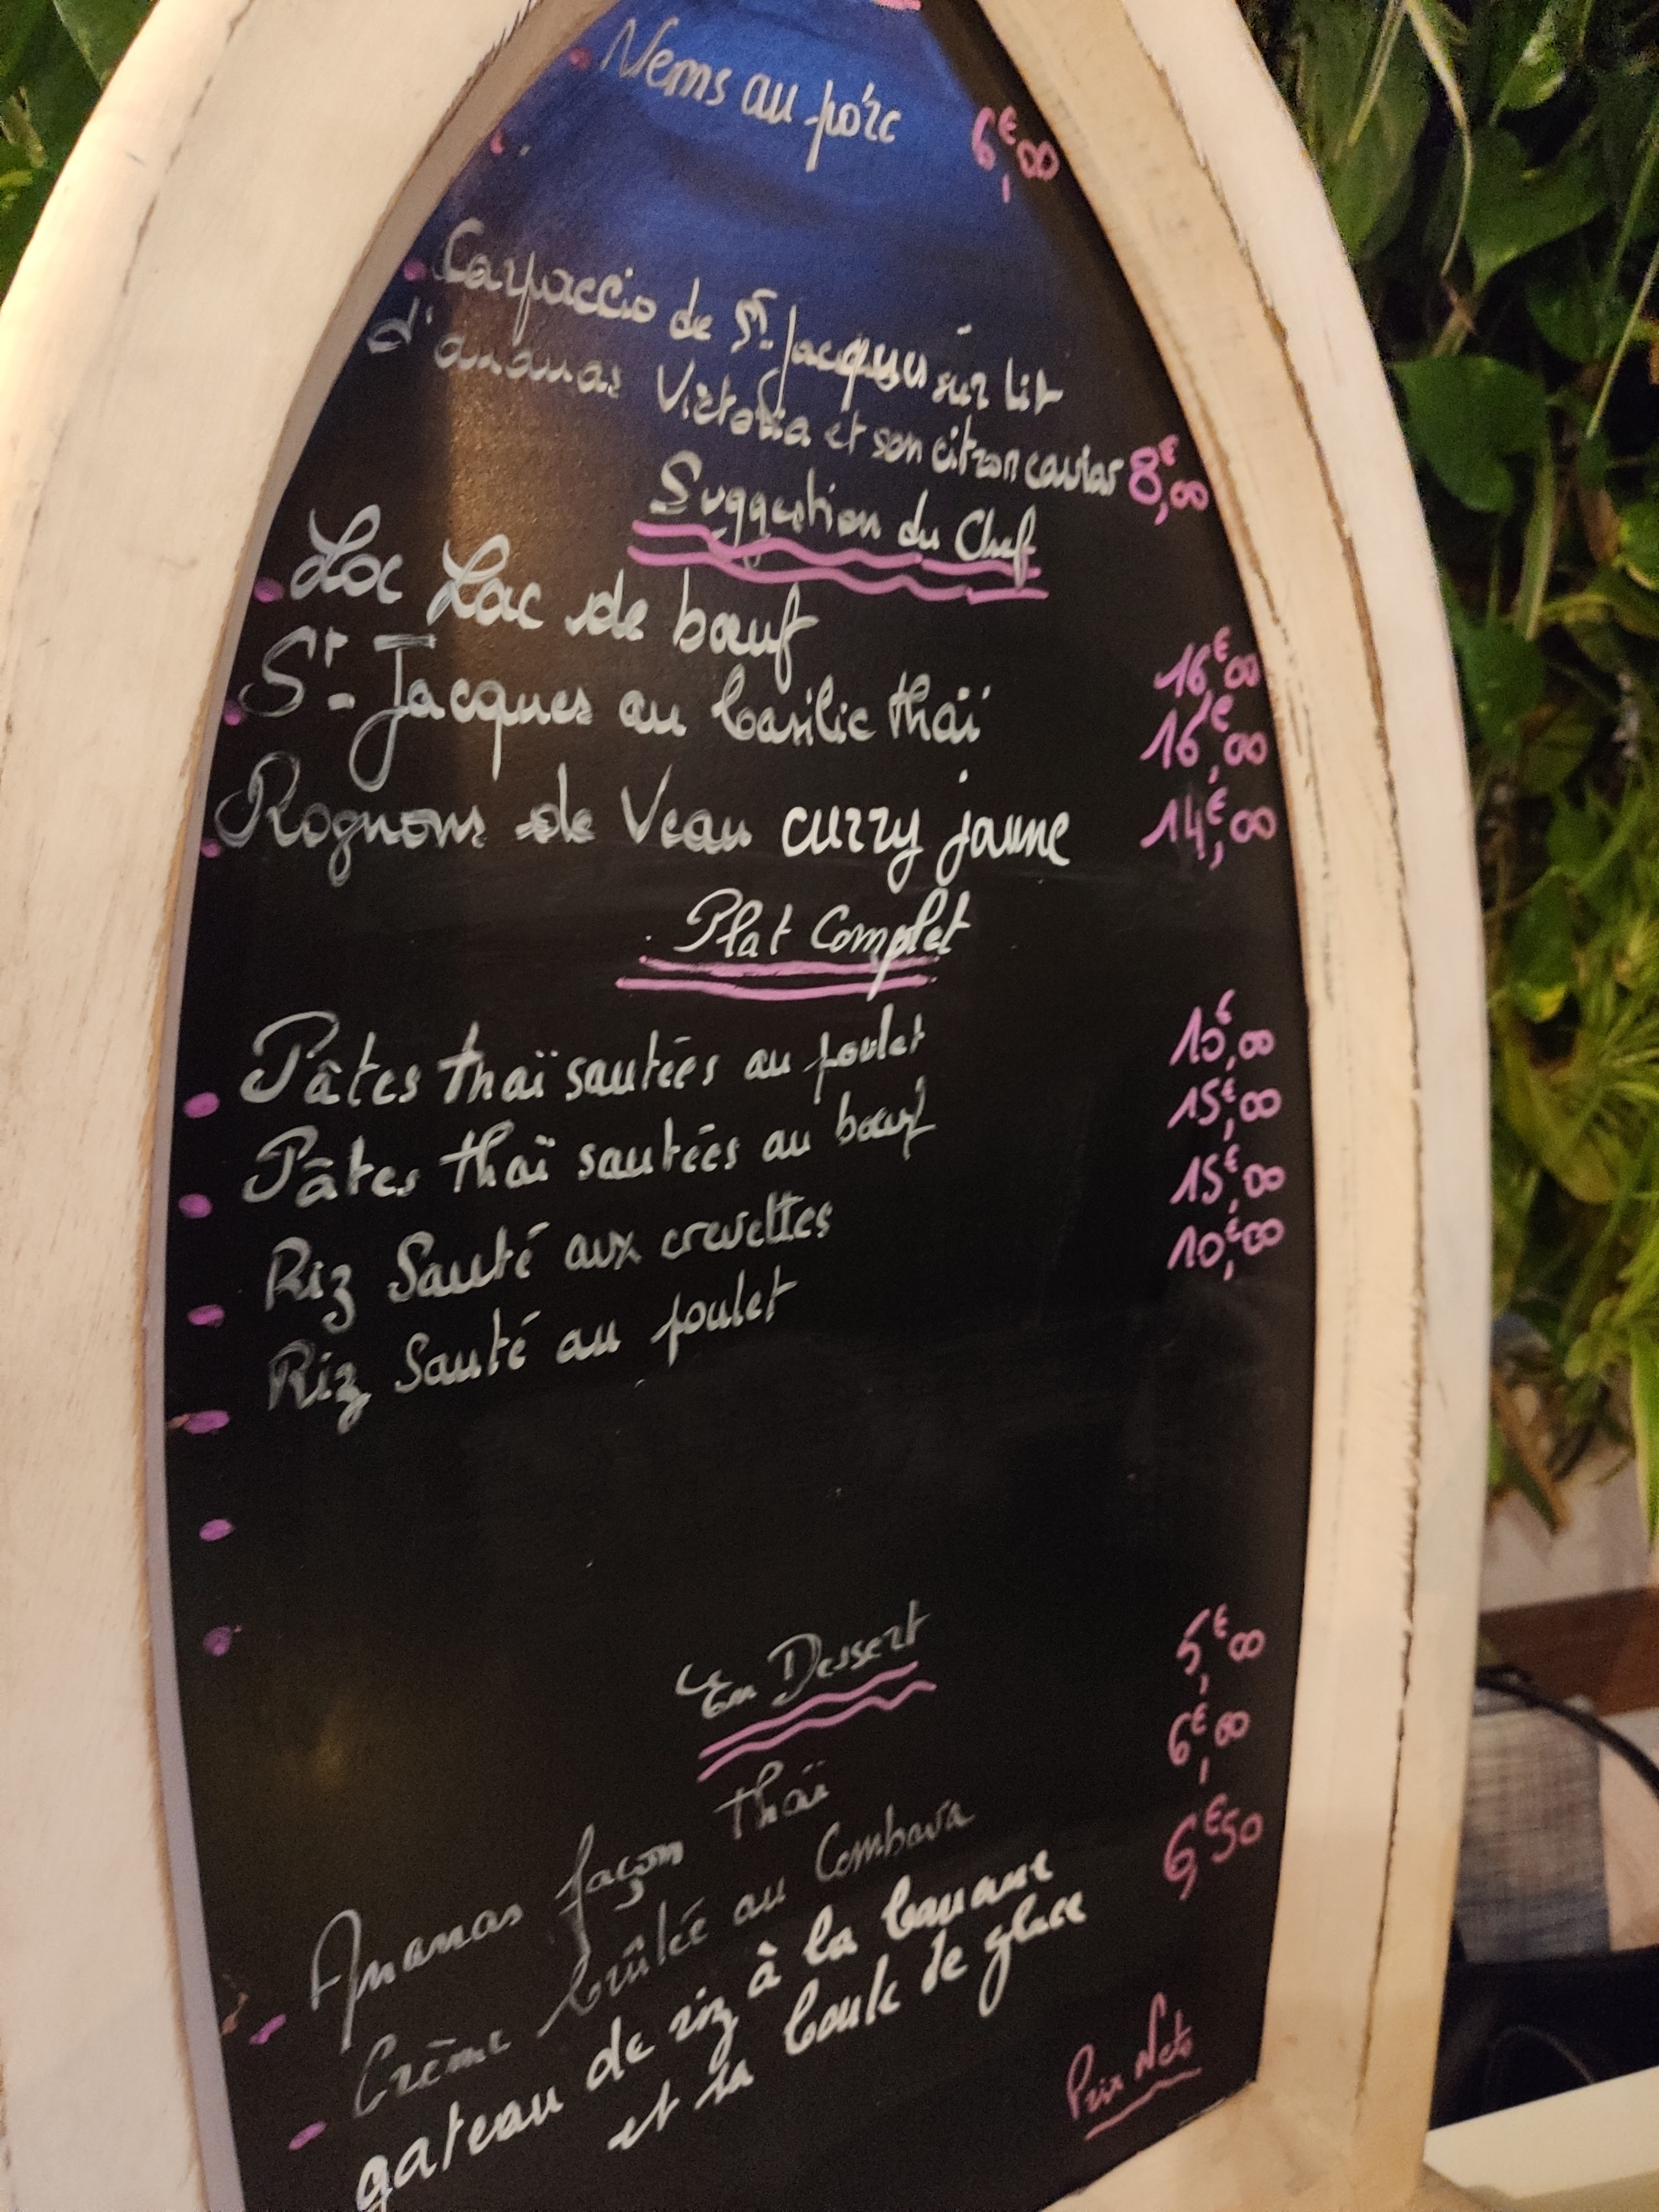 Nems au porc 6€,00
Carpaccio de St. Jacques sur lit
d'ananas Victoria et son citron caviar 8€,00
Suggestion du Chef
Loc Lac de bœuf 16€,00
St-Jacques au basilic thaï 16€,00
Rognons de Veau curry jaune 14€,00
Plat Complet
Pâtes thaï sautées au poulet 10€,00
Pâtes thaï sautées au bœuf 15€,00
Riz Sauté aux crevettes 15€,00
Riz Sauté au poulet 10€,00
En Dessert
Ananas façon thaï 5€,00
Crème brûlée au Combava 6€,00
gateau de riz à la banane 6€,50
et sa boule de glace
Prix Nets